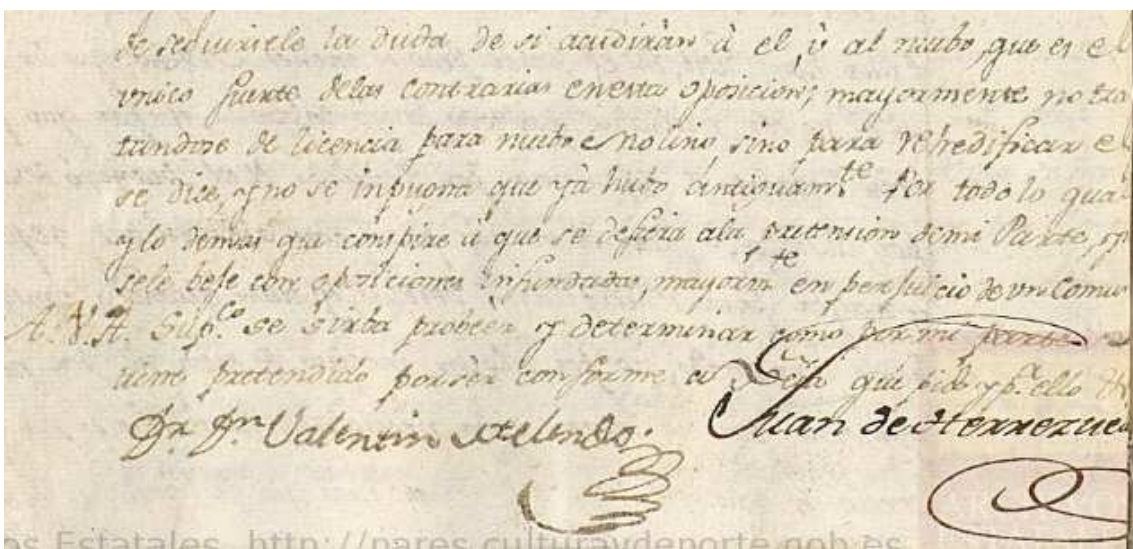 de seguirsele la duda de si acudiràn à el, ù al nuebo, que es el
vnico fuerte delas contrarias enesta oposicion; mayormente no tra
tandose de licencia para nuebo Molino, sino para rehedificar el
se dice, y no se inpugna que yà hubo antiguam.te Por todo lo qual
y lo demas que conspire à que se defiera ala pretension demi Parte, y
sele bese con oposiciones infundadas, mayorm.te en perjuicio de vn Comun
A. V.A. Sup.co se sirba probèèr y determinar como por mi parte
tiene pretendido por sèr conforme a Dro que pido y p.a ello
Dr. Dn. Valentin
Juan de Herrezuel
os Estatales. http://pares.culturaydeporte.gob.es